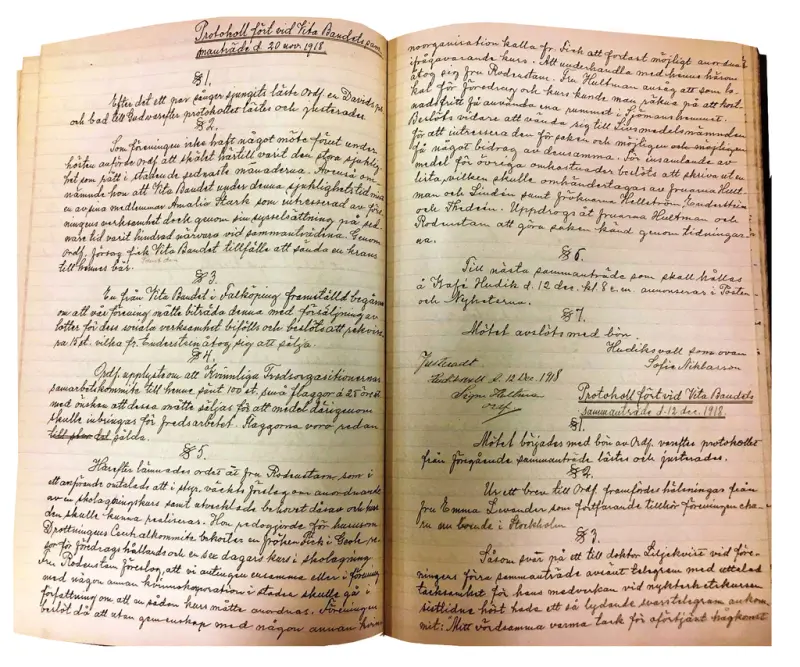 Protokoll fört vid Vita Bandets sam-
manträde d. 20 nov. 1918.
§ 1.
Efter det ett par sånger sjungits läste Ordf. en Davids ps.
och bad till Gud varefter protokollet lästes och justerades
§ 2.
Som föreningen icke haft något möte förut under
hösten anförde Ordf. att skälet härtill varit den stora sjuklig-
het som rått i staden de sednaste månaderna. Avensom
nämnde hon att Vita Bandet under denna sjuklighetstid mist
en av sina medlemmar Amalia Stark som intresserad av före-
ningens verksamhet dock genom sin sysselsättning på sed-
nare tid varit hindrad närvara vid sammanträdena. Genom
Ordf. försorg fick Vita Bandet tillfälle att sända en krans
till hennes bår.
§ 3.
En från Vita Bandet i Falköping framställd begäran
om att vår förening måtte biträda denna med försäljning av
lotter för dess sociala verksamhet bifölls och beslöts att rekvire-
ra 15 st. vilka fr. Enderstein åtog sig att sälja.
§ 4.
Ordf. upplyste om att Kvinnliga Fredsorganisationernas
samarbetskommité till henne sänt 100 st. små flaggor á 25 öre st.
med önskan att dessa måtte säljas för att medel därigenom
skulle inbringas för fredsarbetet. Flaggorna voro redan
sålda.
§ 5.
Härefter lämnades ordet åt fru Rodenstam, som i
ett anförande omtalade att i styr. väckts förslag om anordnande
av en skolagningskurs samt utvecklade behovet därav och huru
den skulle kunna realiseras. Hon redogjorde för hurusom
Drottningens Centralkommité bekostar en fröken Fick i
för föredrags hållande och en sex dagars kurs i skolagning
Fru Rodenstam föreslog, att vi antingen ensamma eller i förening
med någon annan kvinnokorporation i staden skulle gå i
författning om att en sådan kurs måtte anordnas. Föreningen
beslöt då att utan gemenskap med någon annan kvin-
noorganisation kalla fr. Fick att fortast möjligt anordna
ifrågavarande kurs. Att underhandla med henne härom
åtog sig fru Rodenstam. Fru Hultman ansåg att som lo-
kal för föredrag och kurs kunde man räkna på att kost-
nadsfritt få använda ena rummet i Sjömanshemmet.
Beslöts vidare att vända sig till Livsmedelsnämnden
för att intressera den för saken och möjligen och möjligen
få något bidrag av densamma. För insamlande av
medel för övriga omkostnader beslöts att skriva ut en
lista, vilken skulle omhändertagas av fruarna Hult-
man och Lindén samt fröknarna Hellström, Enderstein
och Thedéen. Uppdrogs åt fruarna Hultman och
Rodenstam att göra saken känd genom tidningar-
na.
§ 6.
Till nästa sammanträde som skall hållas
å Kafé Hudik d. 12 dec. kl. 8 e.m. annonseras i Posten
och Nyheterna.
§ 7.
Mötet avslöts med bön
Hudiksvall som ovan
Sofie Niklasson
Justeradt
Hudiksvall d. 12 Dec. 1918
Signe Hultman
ordf.
Protokoll fört vid Vita Bandets
sammanträde d. 12 dec. 1918.
§ 1.
Mötet börjades med bön av Ordf. varefter protokollet
från föregående sammanträde lästes och justerades.
§ 2.
Ur ett brev till Ordf. framfördes hälsningar från
fru Emma Levander som fortfarande tillhör föreningen eha-
ru nu boende i Stockholm
§ 3.
Såsom svar på ett till doktor Liljekvist vid före-
ningens förra sammanträde avsänt telegram med uttalad
tacksamhet för hans medverkan vid nykterhetskursen
sistlidne höst hade ett så lydande svarstelegram ankom-
mit: "Mitt vördsamma varma tack för oförtjänt hågkomst